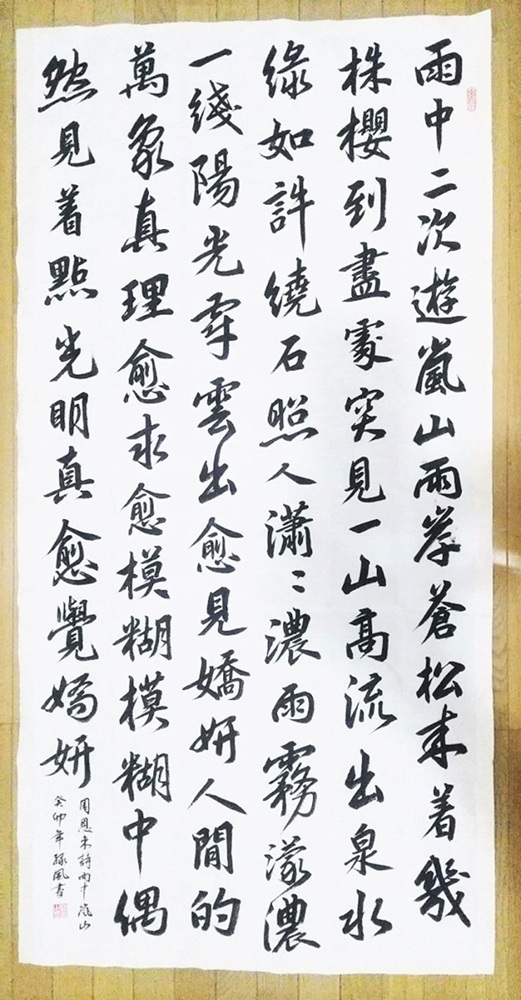 雨中二次遊嵐山兩岸蒼松夾着幾
株櫻到盡處突見一山高流出泉水
綠如許繞石照人瀟〻濃雨霧濛濃
一綫陽光穿雲出愈見嬌妍人間的
萬象真理愈求愈模糊模糊中偶
然見着點光明真愈覺嬌妍
周恩来詩雨中嵐山
癸卯年風書